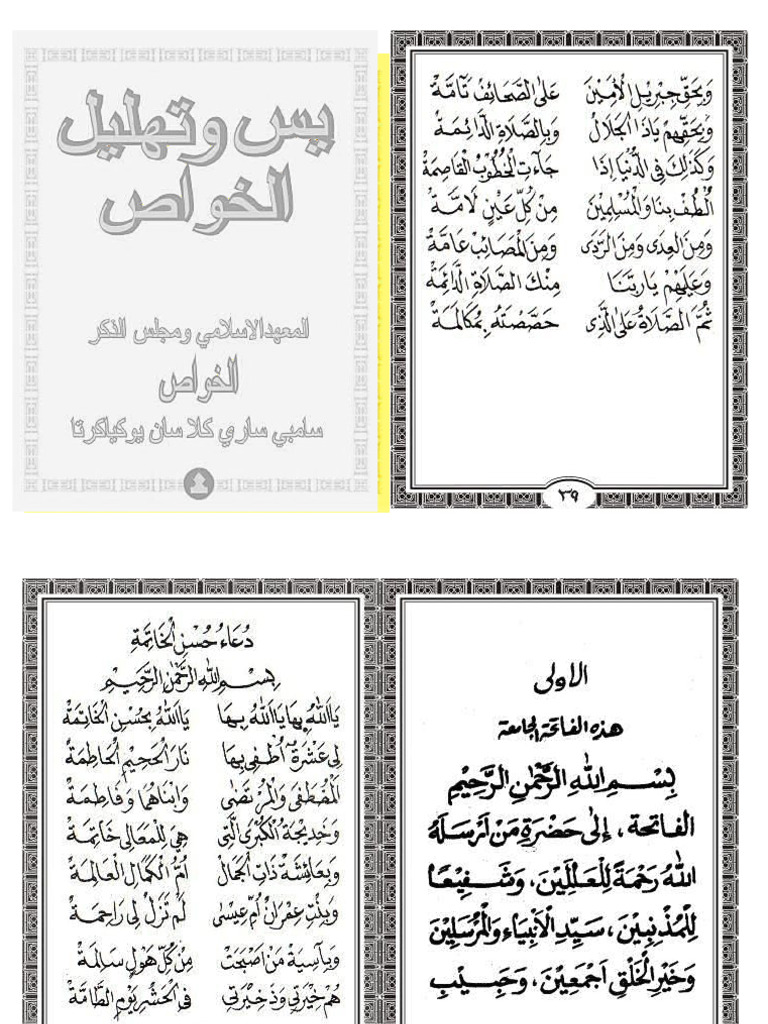 يس وتهليل
الخواص
المعهد الاسلامي ومجلس الذكر
الخواص
سامبي ساري كلاسان يوكياكرتا
وَبِحَقِّ جِبْرِيلِ الْأَمِيْنَ عَلَى الصَّحَائِفُ تَآمَّةْ
وَبِحَقِّهِمْ يَاذَا الْجَلَالْ وَبِالصَّلَاةِ الدَّائِمَةْ
وَكَذٰلِكَ فِى الدُّنْيَا إِذَا جَاءَتِ الْخُطُوْبُ الْقَاصِمَةْ
اُلْطُفْ بِنَا وَالْمُسْلِمِيْنَ مِنْ كُلِّ عَيْنٍ لَامَّةْ
وَمِنَ العِدَى وَمِنَ الرَّدَى وَمِنَ الْمَصَائِبْ عَامَّةْ
وَعَلَيْهِمْ يَارَبَّنَا مِنْكَ الصَّلَاةِ الدَّائِمَةْ
ثُمَّ الصَّلَاةُ عَلَى الَّذِى خَصَّصْتَهُ بِمُكَالَمَةْ
٣٩
دُعَاءُ حُسْنِ الْخَاتِمَةِ
بِسْمِ اللهِ الرَّحْمٰنِ الرَّحِيْمِ
يَا اَللهُ بِهَا يَا اَللهُ بِهَا يَا اَللهُ بِحُسْنِ الْخَاتِمَةْ
لِى عَشْرَةٌ أُطْفِى بِهَا نَارَ الْجَحِيْمِ الْحَاطِمَةْ
اَلْمُصْطَفَى وَالْمُرْتَضَى وَابْنَاهُمَا وَفَاطِمَةْ
وَخَدِيْجَةُ الْكُبْرَى الَّتِى هِيَ لِلْمَعَالِى خَاتِمَةْ
وَبِعَائِشَةْ ذَاتِ الْجَمَالْ اُمُّ الْكَمَالِ الْعَالِمَةْ
وَبِبِنْتِ عِمْرَانْ اُمِّ عِيْسَى لَمْ تَزَلْ لِى رَاحِمَةْ
وَبِآسِيَةْ مَنْ اَصْبَحَتْ مِنْ كُلِّ هَوْلٍ سَالِمَةْ
هُمْ خِيْرَتِى وَذَخِيْرَتِى فِى الْحَشْرِ يَوْمَ الطَّامَّةْ
الاولى
هذه الفاتحة الجامعة
بِسْمِ اللهِ الرَّحْمٰنِ الرَّحِيْمِ
الفاتحة، إلى حَضْرَةِ مَنْ اَرْسَلَهُ
اللهُ رَحْمَةً لِلْعٰلَمِيْنَ، وَشَفِيْعًا
لِلْمُذْنِبِيْنَ، سَيِّدِ الْاَنْبِيَاءِ وَالْمُرْسَلِيْنَ
وَخَيْرِ الْخَلْقِ اَجْمَعِيْنَ، وَحَبِيْبِ